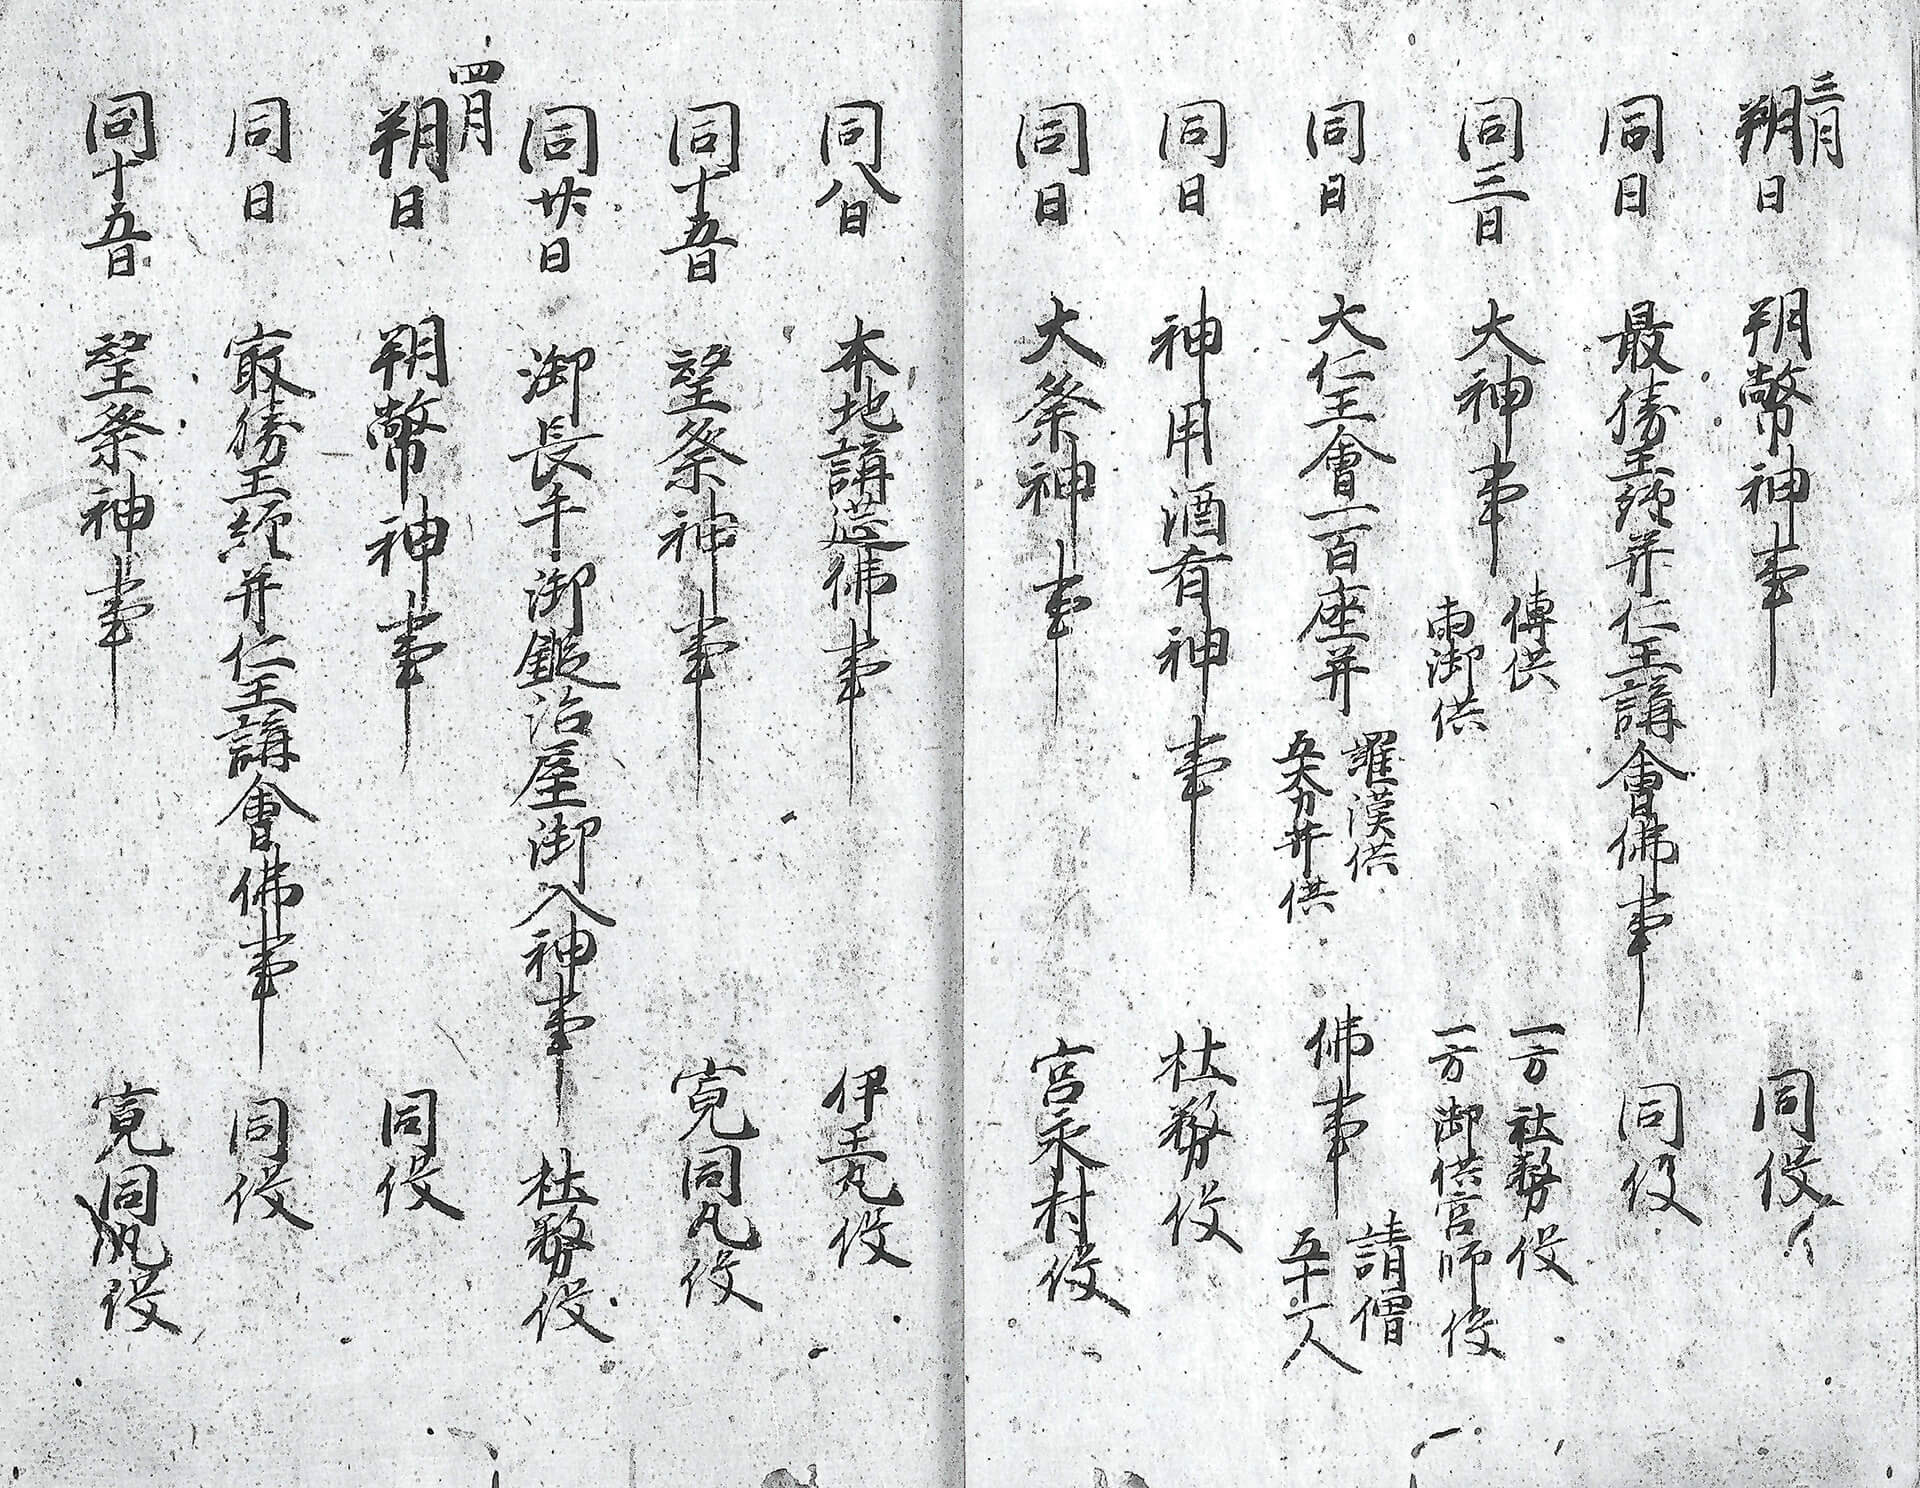 三月
朔日 朔幣神事 同役
同日 最勝王経并仁王講會佛事 同役
同三日 大神事 傳供 両御供 一方社務役 一方御供宮師役
同日 大仁王會一百座并 羅漢供 五大力井供 佛事 請僧 五十一人
同日 神用酒肴神事 社務役
同日 大祭神事 宮永村役
同八日 本地講莚佛事 伊王丸役
同十五日 望祭神事 寛同丸役
同廿日 御長手御鍛冶屋御入神事 社務役
四月
朔日 朔幣神事 同役
同日 最勝王経并仁王講會佛事 同役
同十五日 望祭神事 寛同丸役